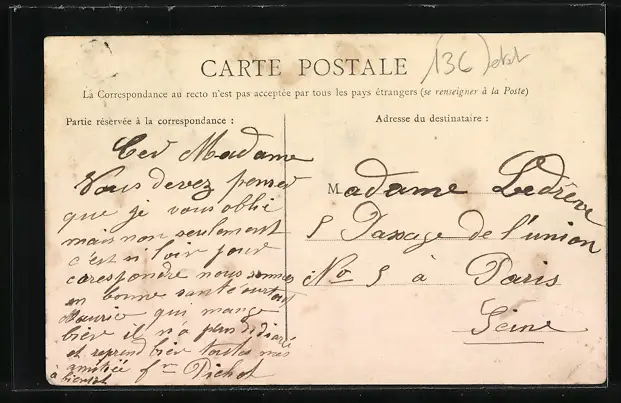 CARTE POSTALE
La Correspondance au recto n'est pas acceptée par tous les pays étrangers (se renseigner à la Poste)
Partie réservée à la correspondance :
Cer Madame
Vous devez penser
que je vous oblie
mais non seulement
c'est n loir pour
corespondre nous sommes
en bonne santé surtout
Maurice qui mange
bien il n'a plus diaré
et reprend bien toutes mes
amitiée fme Pichot
à bientot
Adresse du destinataire :
Madame Ledreve
5 Passage de l'union
No 5 à Paris
Seine